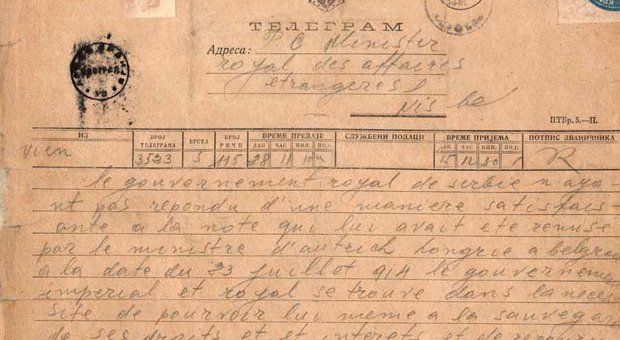 ТЕЛЕГРАМ
Адреса:
Minister
royal des affaires
etrangeres
Nis be
ПТБр. 5.—II.
ИЗ БРОЈ ТЕЛЕГРАМА ВРСТА БРОЈ РЕЧИ ВРЕМЕ ПРЕДАЈЕ ДАН ЧАС МИН. ПОД. СЛУЖБЕНИ ПОДАЦИ ВРЕМЕ ПРИЈЕМА ДАН ЧАС МИН. ПОД. ПОТПИС ЗВАНИЧНИКА
vien 3523 28 11 10 12 30
le gouvernement royal de serbie n aya
nt pas repondu d'une maniere satisfais
ante a la note qui lui avait ete remise
par le ministre d'autrich hongrie a belgra
a la date du 23 juillot 914 le gouverneme
imperial et royal se trouve dans la neces
site de pourvoir lui meme a la sauvegar
de ses droits et et interets et de